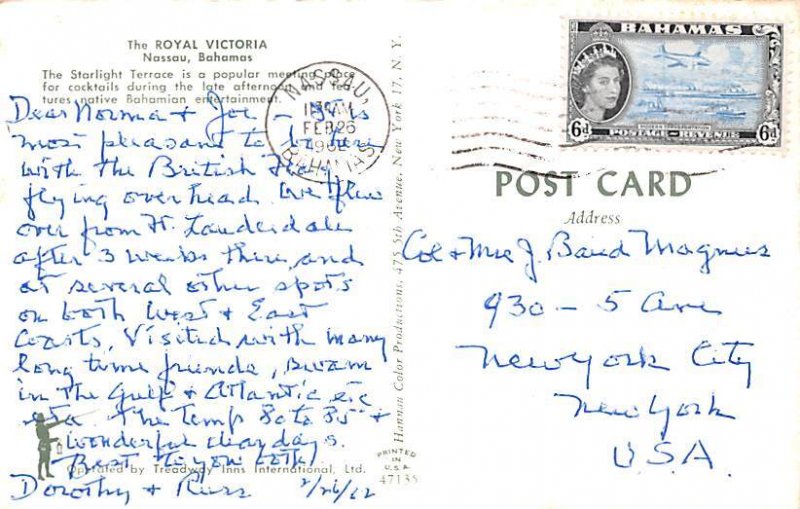 The ROYAL VICTORIA
Nassau, Bahamas
The Starlight Terrace is a popular meeting place
for cocktails during the late afternoon and fea-
tures native Bahamian entertainment.
Dear Norma & Joe - It is
most pleasant to be here
with the British Flag
flying overhead. We flew
over from Ft. Lauderdale
after 3 weeks there, and
at several other spots
on both West & East
Coasts. Visited with many
long time friends, swam
in the Gulf & Atlantic etc
etc. The Temp 80 to 85° &
wonderful clear days.
Best to you both
Operated by Treadway Inns International, Ltd.
Dorothy & Russ 2/26/62
NASSAU,
FEB 26
1962
BAHAMAS
Hannau Color Productions, 475 5th Avenue, New York 17, N. Y.
PRINTED
IN
U.S.A.
47135
BAHAMAS
6d
6d
POSTAGE - REVENUE
POST CARD
Address
Col & Mrs J. Baird Magnus
930 - 5 Ave
New York City
New York
U.S.A.